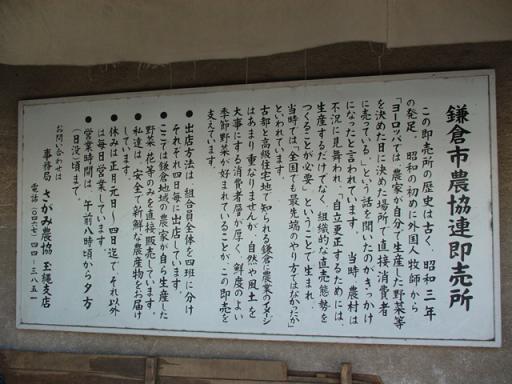 鎌倉市農協連即売所
この即売所の歴史は古く、昭和三年
の発足。昭和の初めに外国人牧師から
「ヨーロッパでは、農家が自分で生産した野菜等
を決めた日に決めた場所で直接消費者
に売っている」という話を聞いたのがきっかけ
になったと言われています。当時、農村は
不況に見舞われ、「自立更正するためには、
生産するだけでなく、組織的な直売態勢を
つくることが必要」ということで生まれ、
当時では、全国でも最先端のやり方ではなかったか
といわれています。
古都と高級住宅地で知られる鎌倉と農業のイメージ
はあまり重なりませんが、自然や風土を
大事にする消費者層が厚く、鮮度のよい
季節野菜が好まれていることが、この即売を
支えています。
● 出店方法は、組合員全体を四班に分け
それぞれ四日毎に出店しています。
● ここでは鎌倉地域の農家が自ら生産した
野菜、花等のみを直接販売しています。
● 私達は、安全で新鮮な農産物をお届け
しています。
● 休みは正月元日〜四日迄で、それ以外
は毎日営業しています。
● 営業時間は、午前八時頃から夕方
(日没)頃まで。
お問い合わせは
事務局 さがみ農協 玉縄支店
電話(〇四六七)四四-三八五一